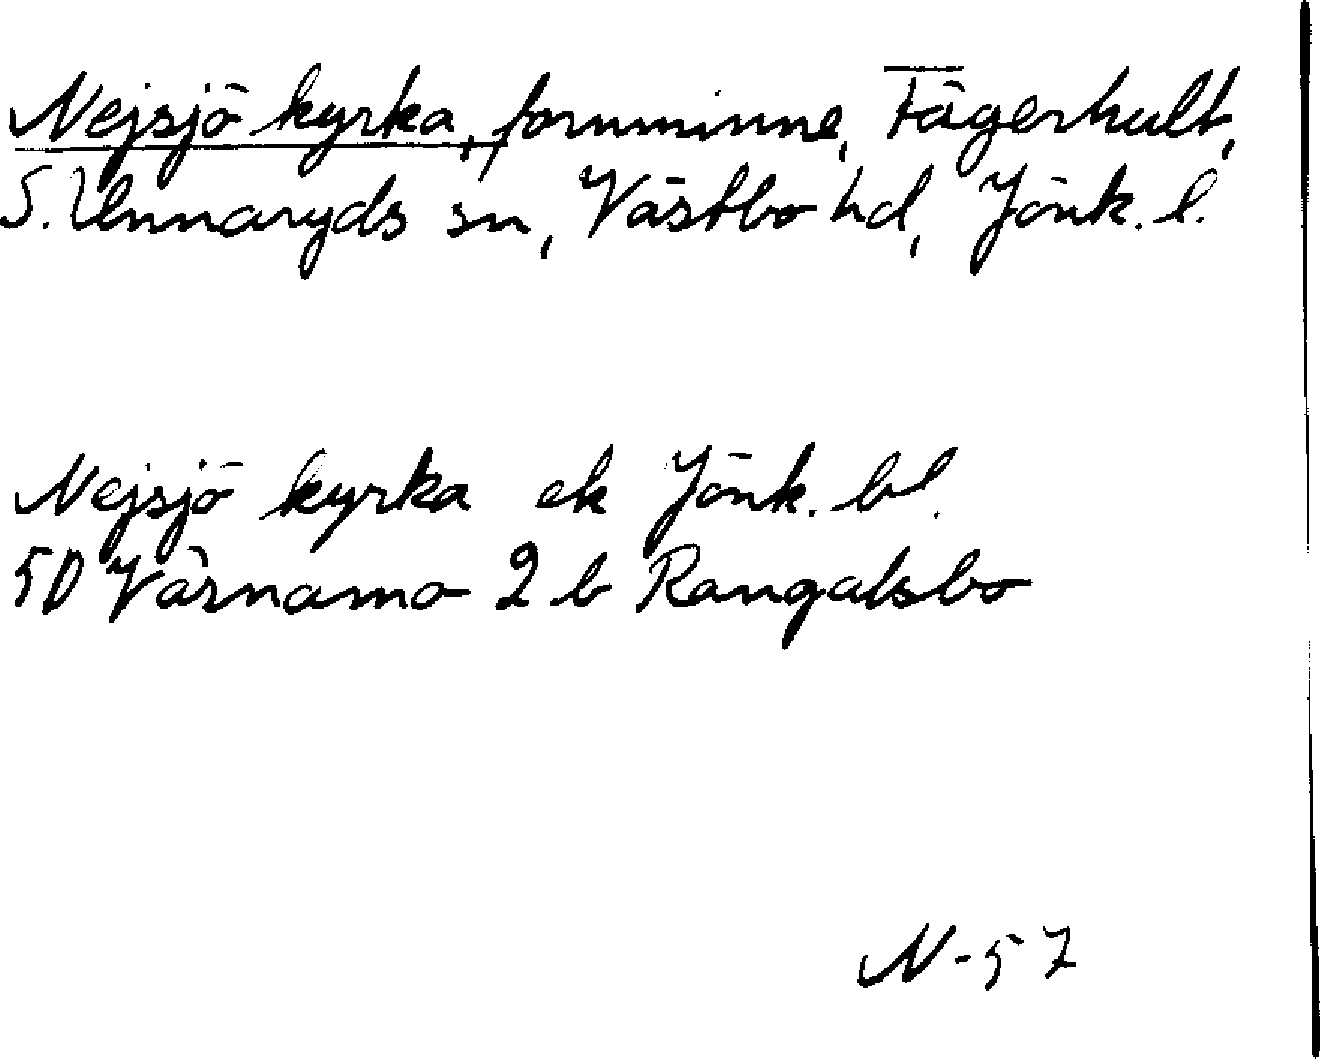 Nejsjö kyrka, fornminne, Fägerhult,
S. Unnaryds sn, Västbo hd, Jönk. l.
Nejsjö kyrka ek Jönk. bl.
5D Värnamo 2 b Rangalsbo
N-57